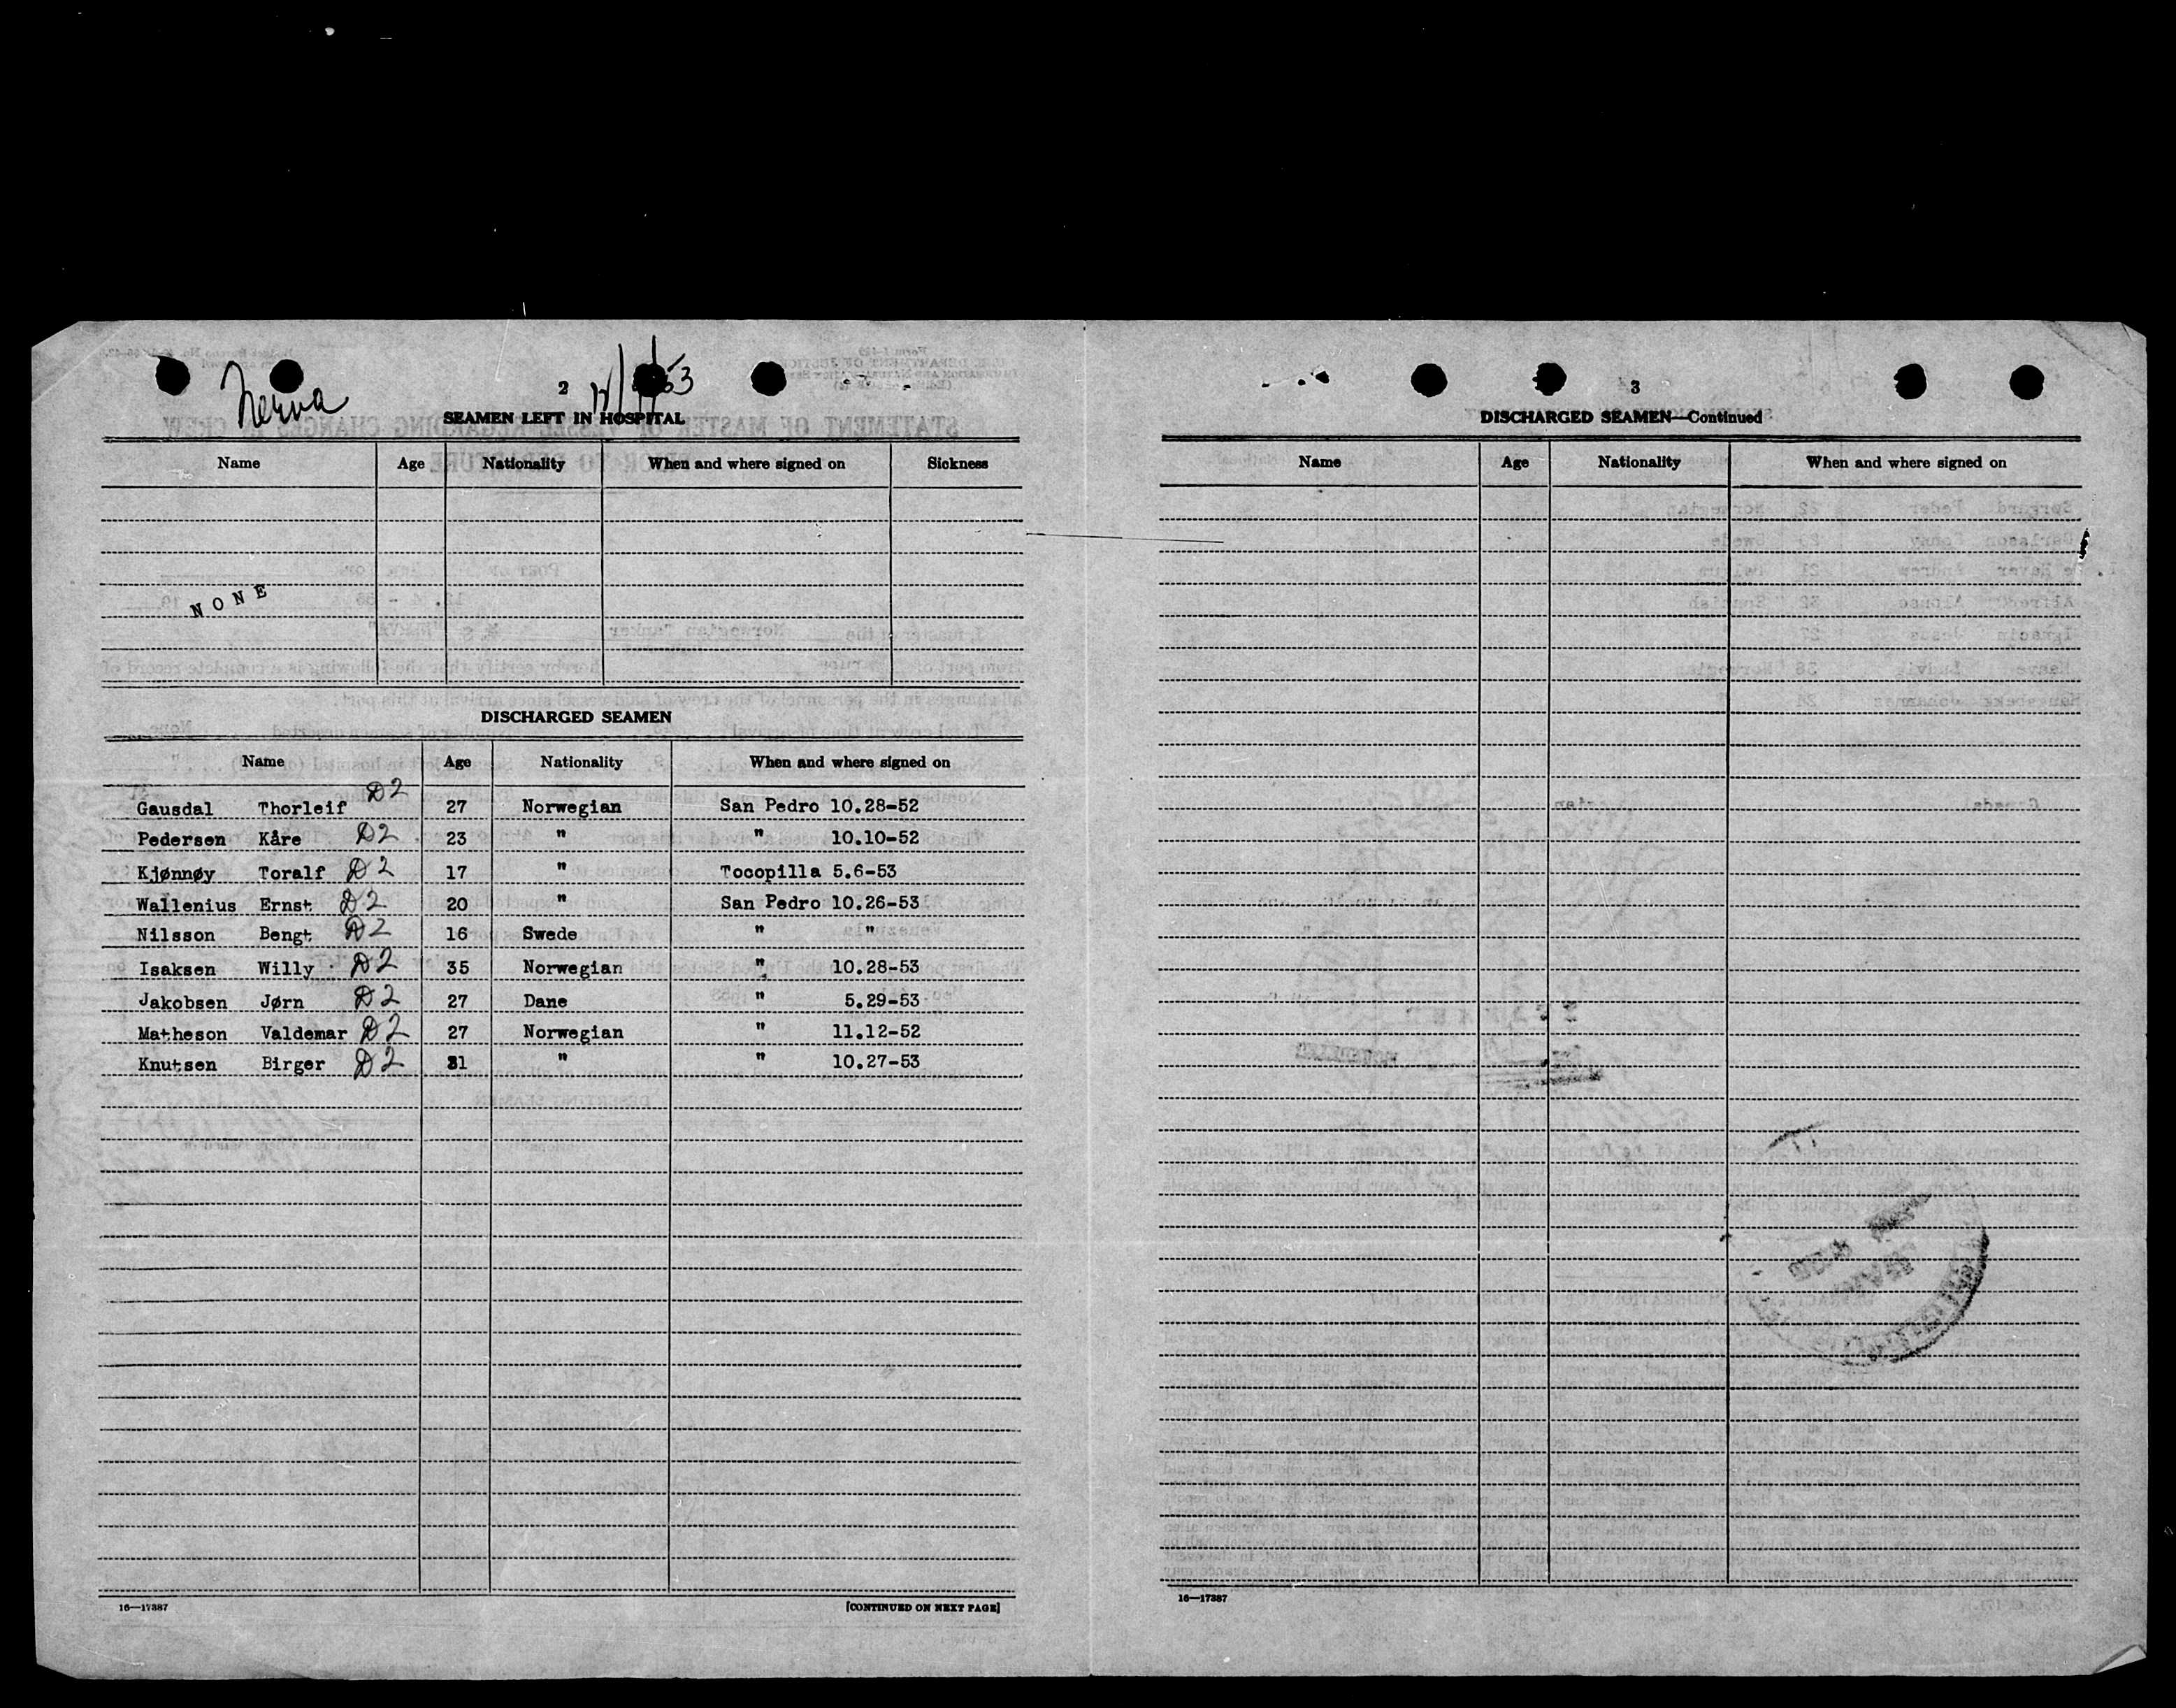 Nerva
2
SEAMEN LEFT IN HOSPITAL
Name Age Nationality When and where signed on Sickness
NONE
DISCHARGED SEAMEN
Name Age Nationality When and where signed on
Gausdal Thorleif D2 27 Norwegian San Pedro 10.28-52
Pedersen Kåre D2 23 " " 10.10-52
Kjønnøy Toralf D2 17 " Tocopilla 5.6-53
Wallenius Ernst D2 20 " San Pedro 10.26-53
Nilsson Bengt D2 16 Swede " "
Isaksen Willy D2 35 Norwegian " 10.28-53
Jakobsen Jørn D2 27 Dane " 5.29-53
Matheson Valdemar D2 27 Norwegian " 11.12-52
Knutsen Birger D2 31 " " 10.27-53
16—17387 [CONTINUED ON NEXT PAGE]
3
DISCHARGED SEAMEN—Continued
Name Age Nationality When and where signed on
16—17387